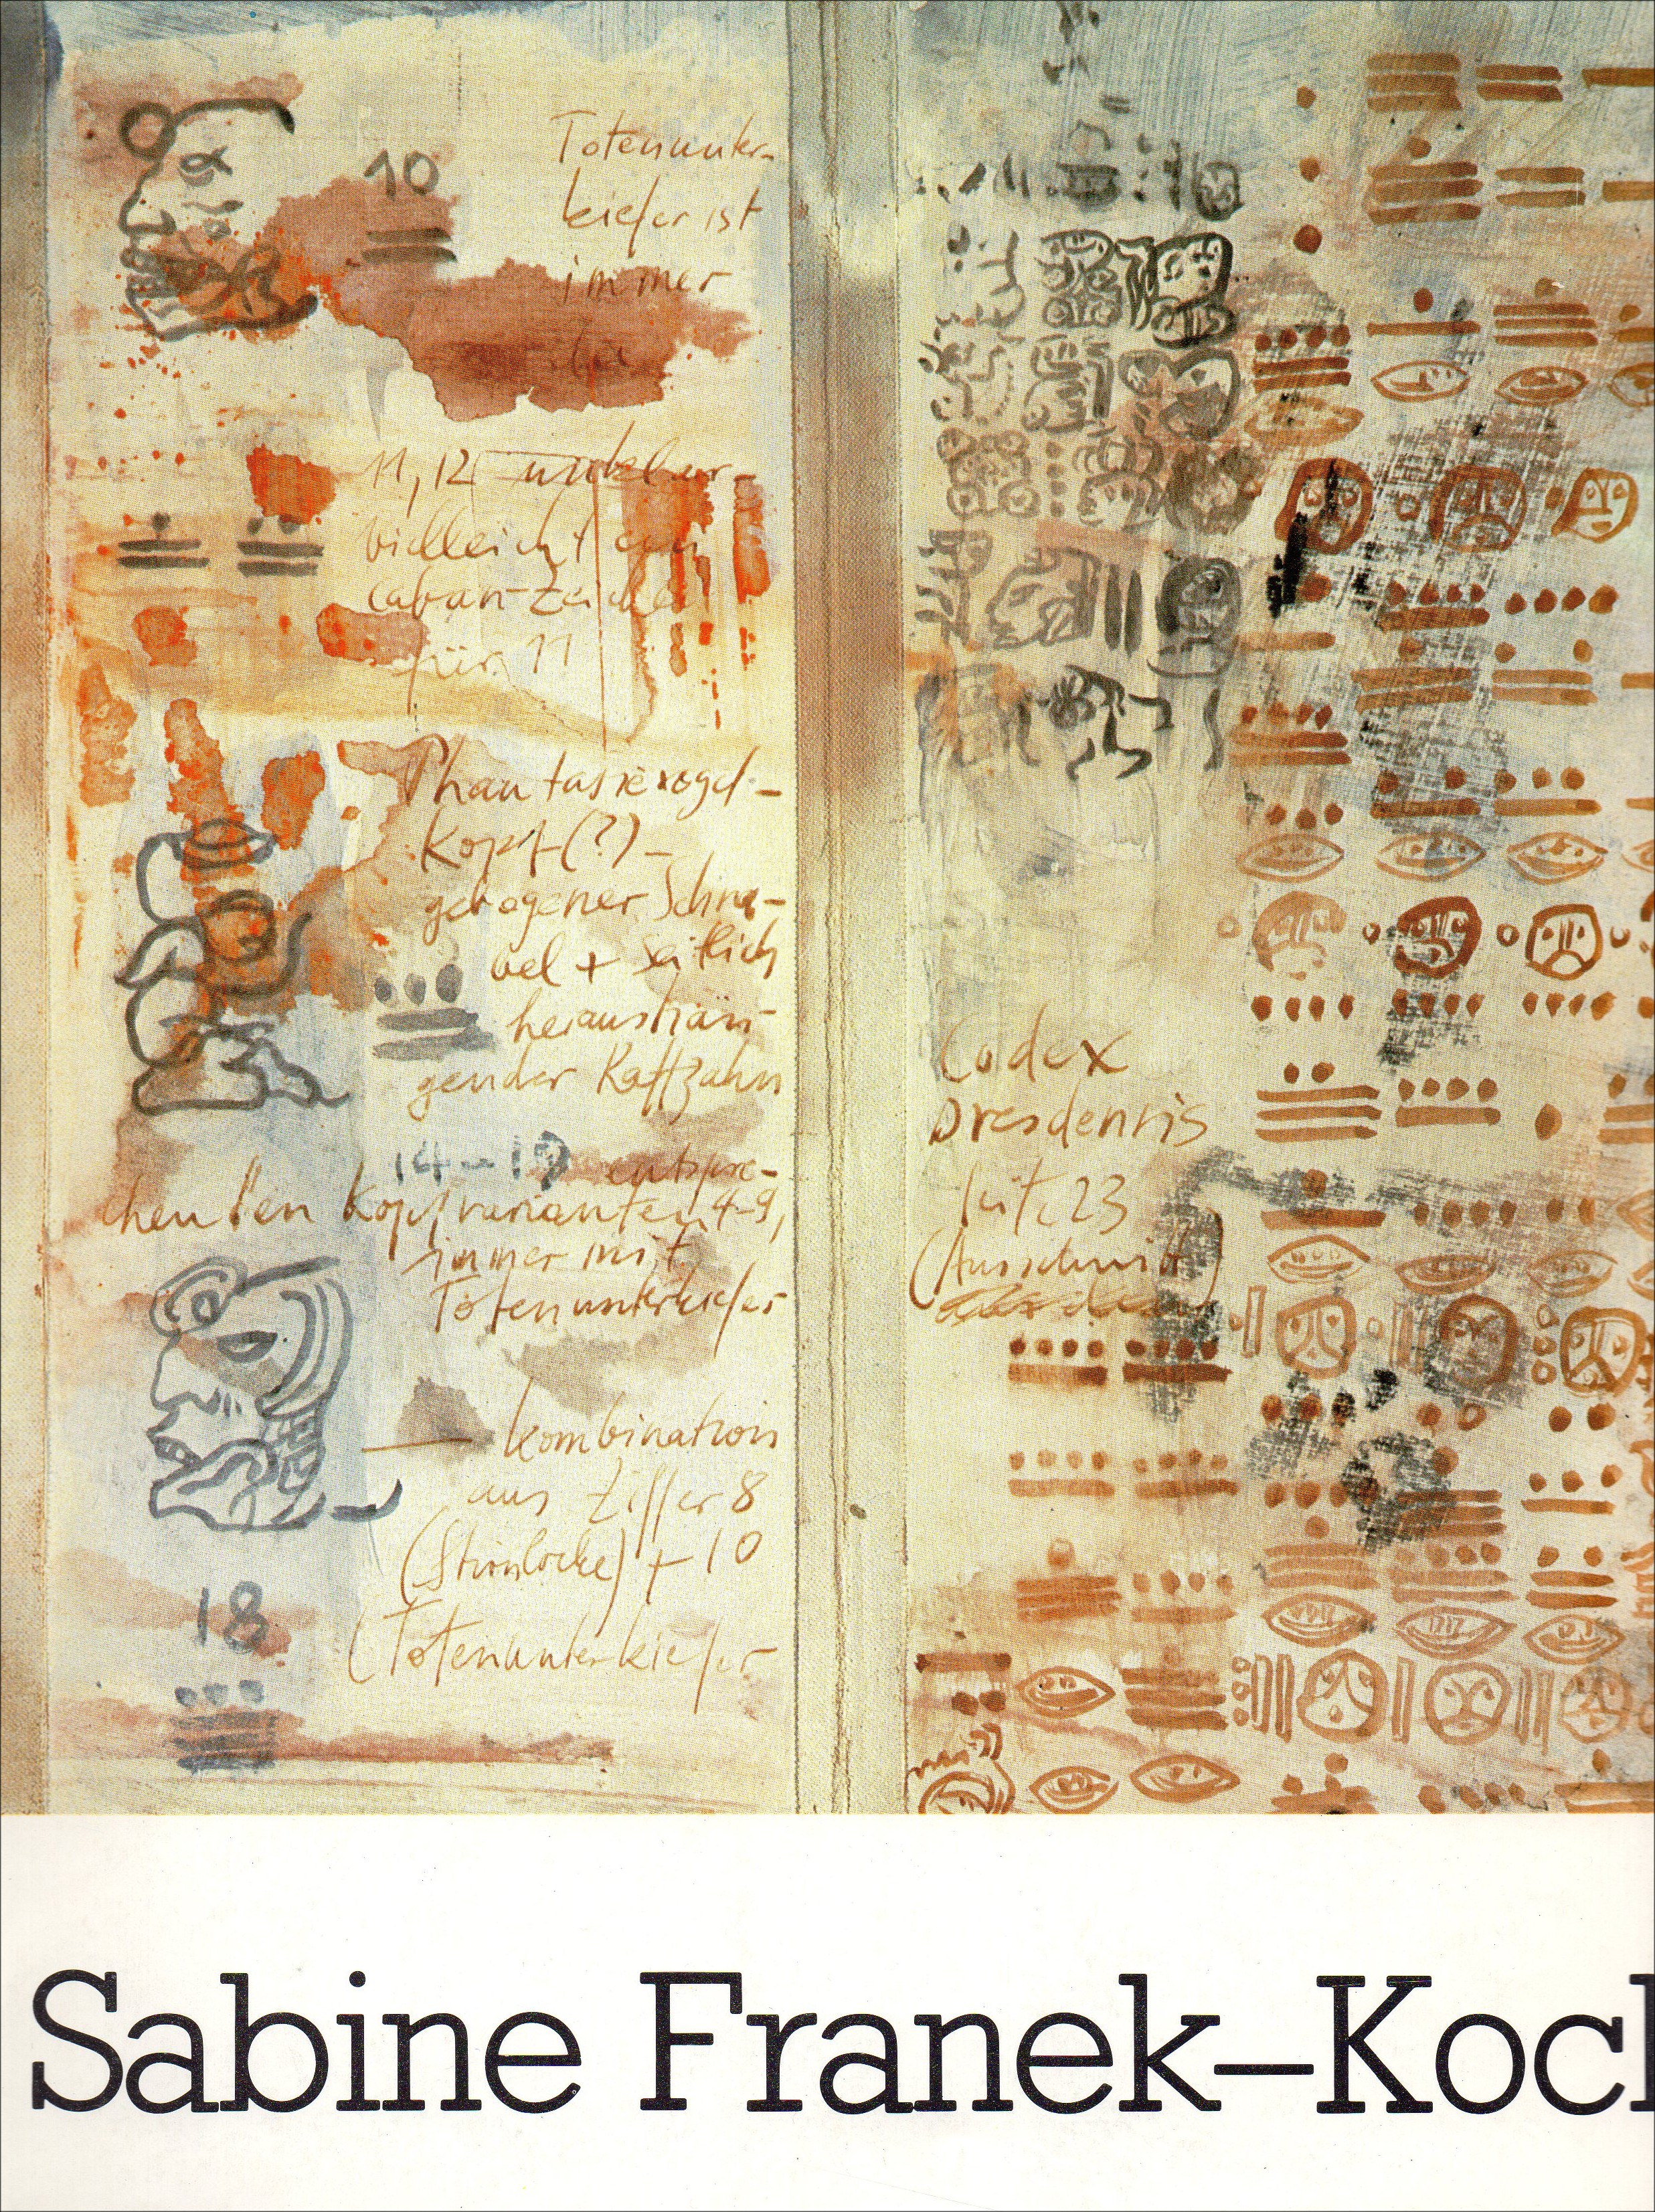 10
Totenunter-
kiefer ist
immer
11, 12 unklar -
vielleicht ein
caban-Zeichen
für 11
Phantasievogel-
kopf (?) -
gebogener Schna-
bel + seitlich
heraushän-
gender Raffzahn
14-19 entspre-
chen den Kopfvarianten 4-9,
immer mit
Totenunterkiefer
— Kombination
aus Ziffer 8
(Stirnlocke) + 10
(Totenunterkiefer
18
Codex
Dresdensis
Seite 23
(Ausschnitt)
Sabine Franek–Koch